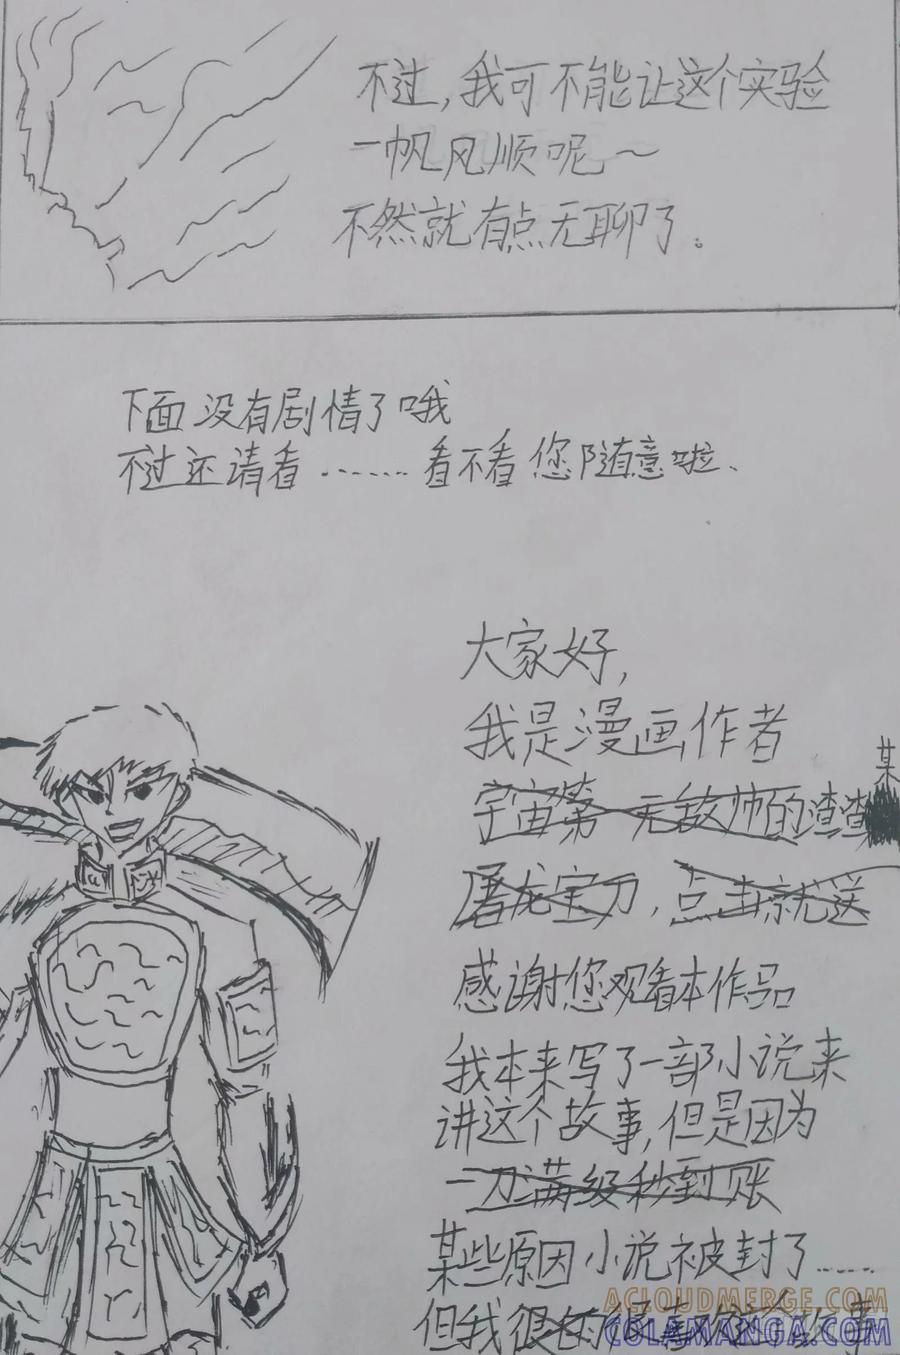 不过，我可不能让这个实验
一帆风顺呢～
不然就有点无聊了。
下面没有剧情了哦
不过还请看……看不看您随意啦、
大家好，
我是漫画作者
某
宇宙第一无敌帅的渣渣
屠龙宝刀，点击就送
感谢您观看本作品
我本来写了一部小说来
讲这个故事，但是因为
一刀满级秒到账
某些原因小说被封了……
但我很
故事
ACLOUDMERGE.COM
COLAMANGA.COM